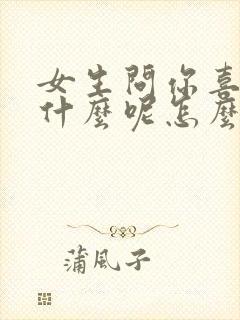 女生問你喜
什麼呢怎麼
蒲風子